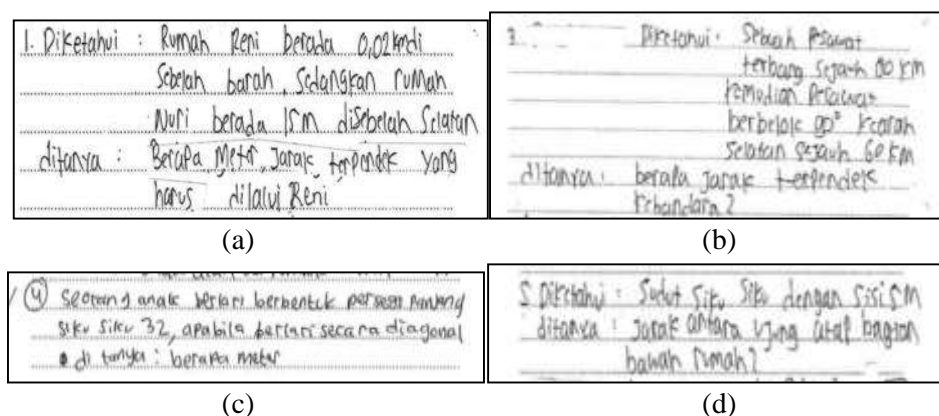 1. Diketahui : Rumah Reni berada 0,02 km di
Sebelah barah, Sedangkan rumah
Nuri berada 15m disebelah Selatan
ditanya : Berapa Meter Jarak terpendek yang
harus dilalui Reni
(a)
3. Diketahui : Sebuah Pesawat
terbang sejauh 80 km
kemudian Pesawat
berbelok 90° kearah
Selatan sejauh 60 km
ditanya : berapa jarak terpendek
kebandara ?
(b)
(4) Seorang anak berlari berbentuk persegi panjang
siku siku 32, apabila berlari secara diagonal
di tanya : berapa meter
(c)
5 Diketahui : Sudut Siku Siku dengan Sisi 5M
ditanya : jarak antara ujung atap bagian
bawah rumah ?
(d)